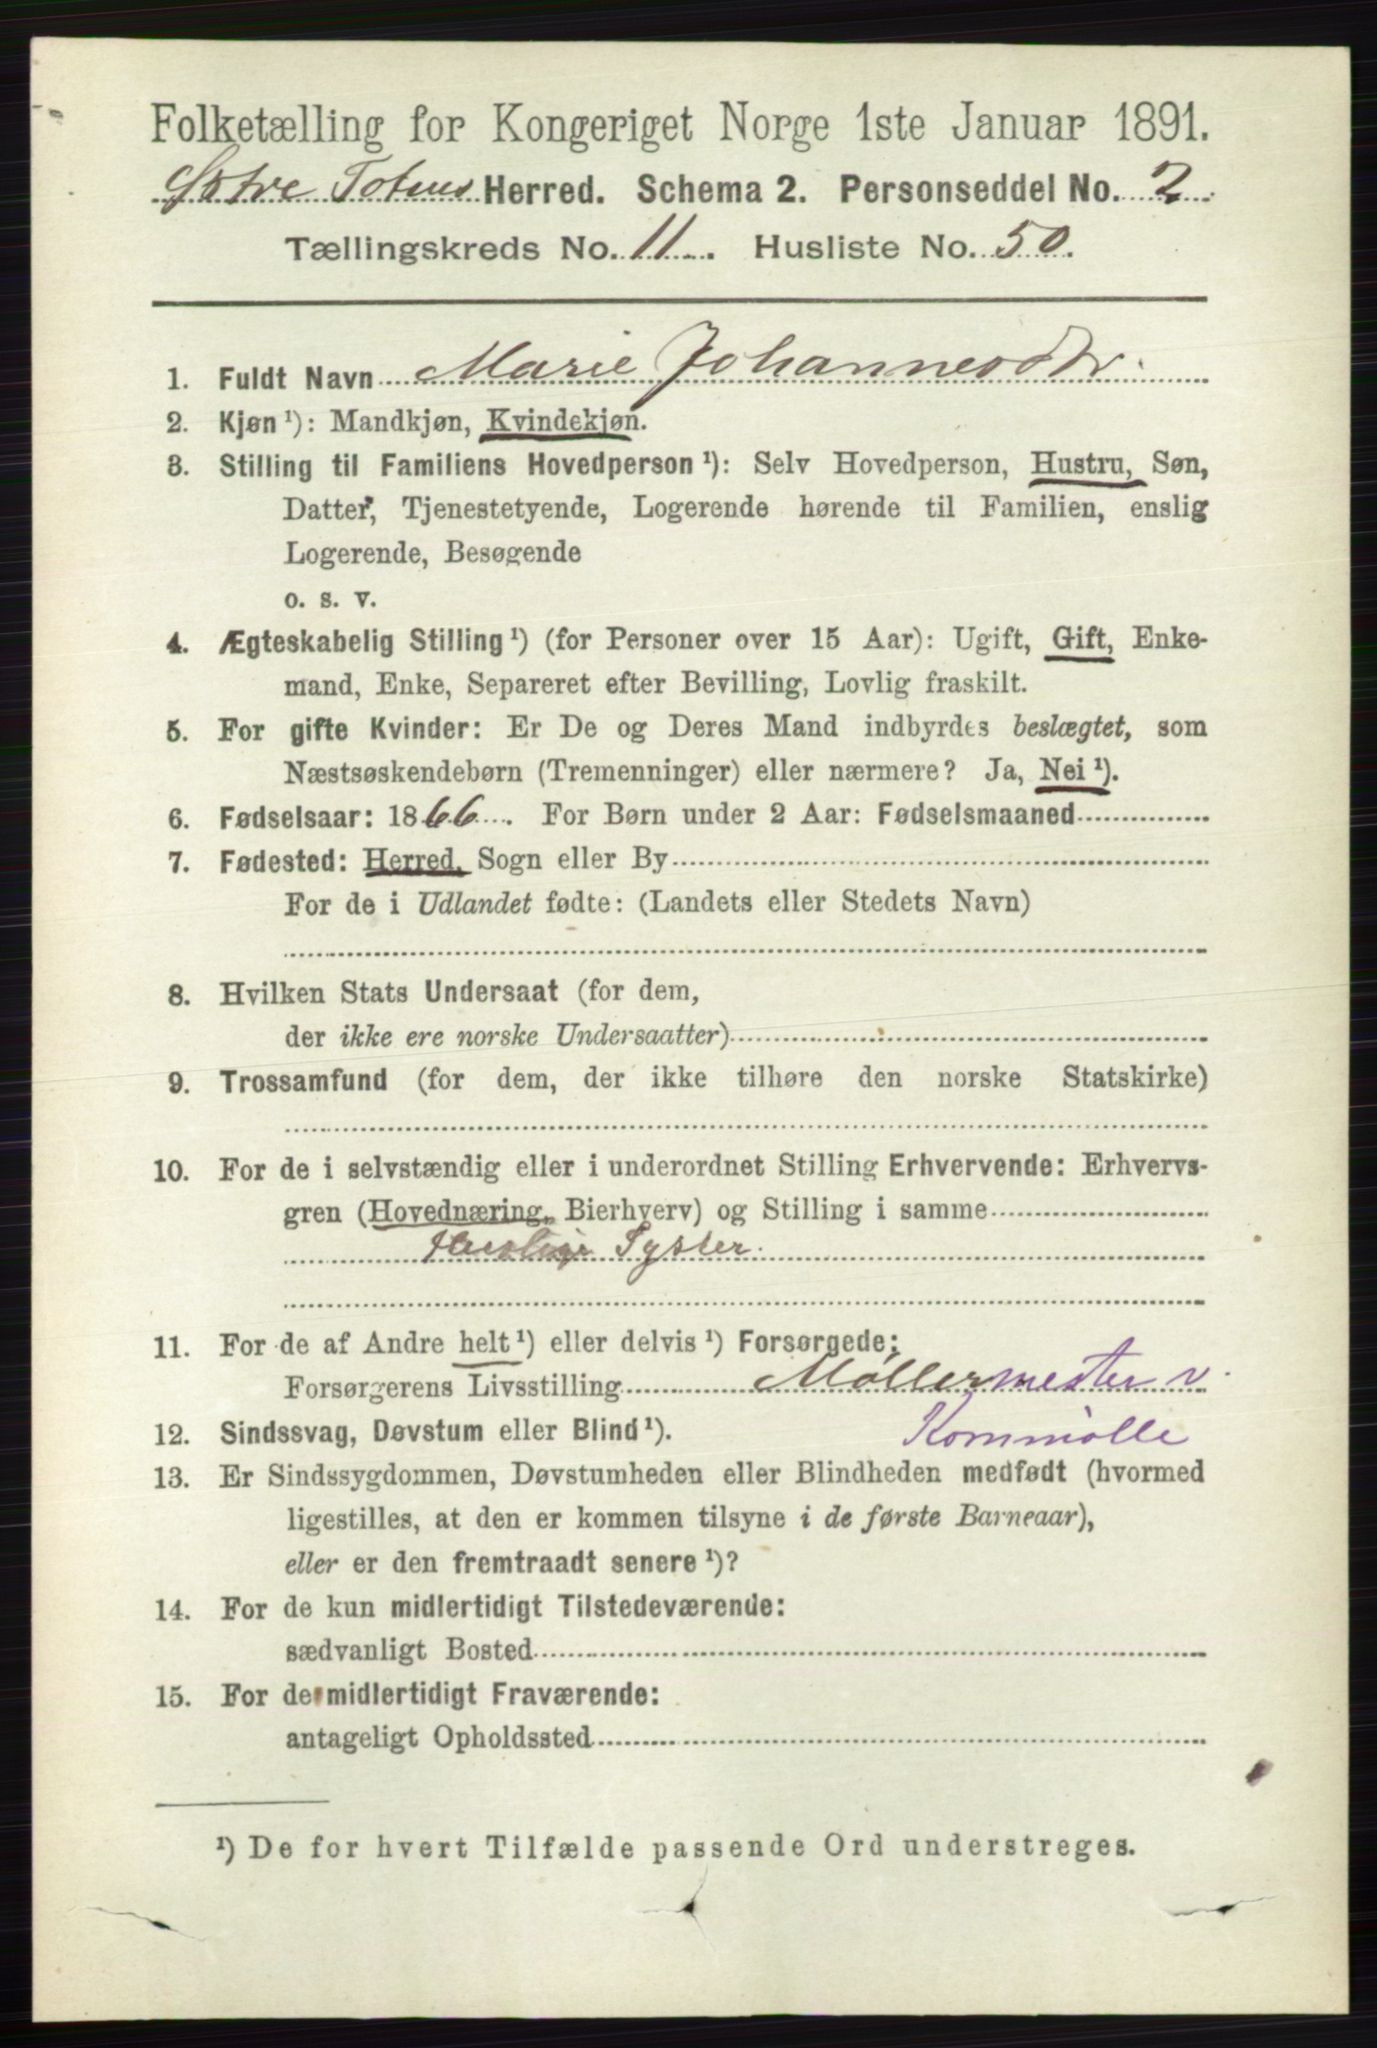 Folketælling for Kongeriget Norge 1ste Januar 1891.
Østre Totens Herred. Schema 2. Personseddel No. 2
Tællingskreds No. 11. Husliste No. 50.
1. Fuldt Navn Marie Johannesdtr.
2. Kjøn ¹): Mandkjøn, Kvindekjøn.
3. Stilling til Familiens Hovedperson ¹): Selv Hovedperson, Hustru, Søn,
Datter, Tjenestetyende, Logerende hørende til Familien, enslig
Logerende, Besøgende
o. s. v.
4. Ægteskabelig Stilling ¹) (for Personer over 15 Aar): Ugift, Gift, Enke-
mand, Enke, Separeret efter Bevilling, Lovlig fraskilt.
5. For gifte Kvinder: Er De og Deres Mand indbyrdes beslægtet, som
Næstsøskendebørn (Tremenninger) eller nærmere? Ja, Nei ¹).
6. Fødselsaar: 1866. For Børn under 2 Aar: Fødselsmaaned
7. Fødested: Herred, Sogn eller By
For de i Udlandet fødte: (Landets eller Stedets Navn)
8. Hvilken Stats Undersaat (for dem,
der ikke ere norske Undersaatter)
9. Trossamfund (for dem, der ikke tilhøre den norske Statskirke)
10. For de i selvstændig eller i underordnet Stilling Erhvervende: Erhvervs-
gren (Hovednæring, Bierhverv) og Stilling i samme
Huslige Sysler.
11. For de af Andre helt ¹) eller delvis ¹) Forsørgede:
Forsørgerens Livsstilling Møllermester v.
12. Sindssvag, Døvstum eller Blind ¹). Kornmølle
13. Er Sindssygdommen, Døvstumheden eller Blindheden medfødt (hvormed
ligestilles, at den er kommen tilsyne i de første Barneaar),
eller er den fremtraadt senere ¹)?
14. For de kun midlertidigt Tilstedeværende:
sædvanligt Bosted
15. For de midlertidigt Fraværende:
antageligt Opholdssted
¹) De for hvert Tilfælde passende Ord understreges.